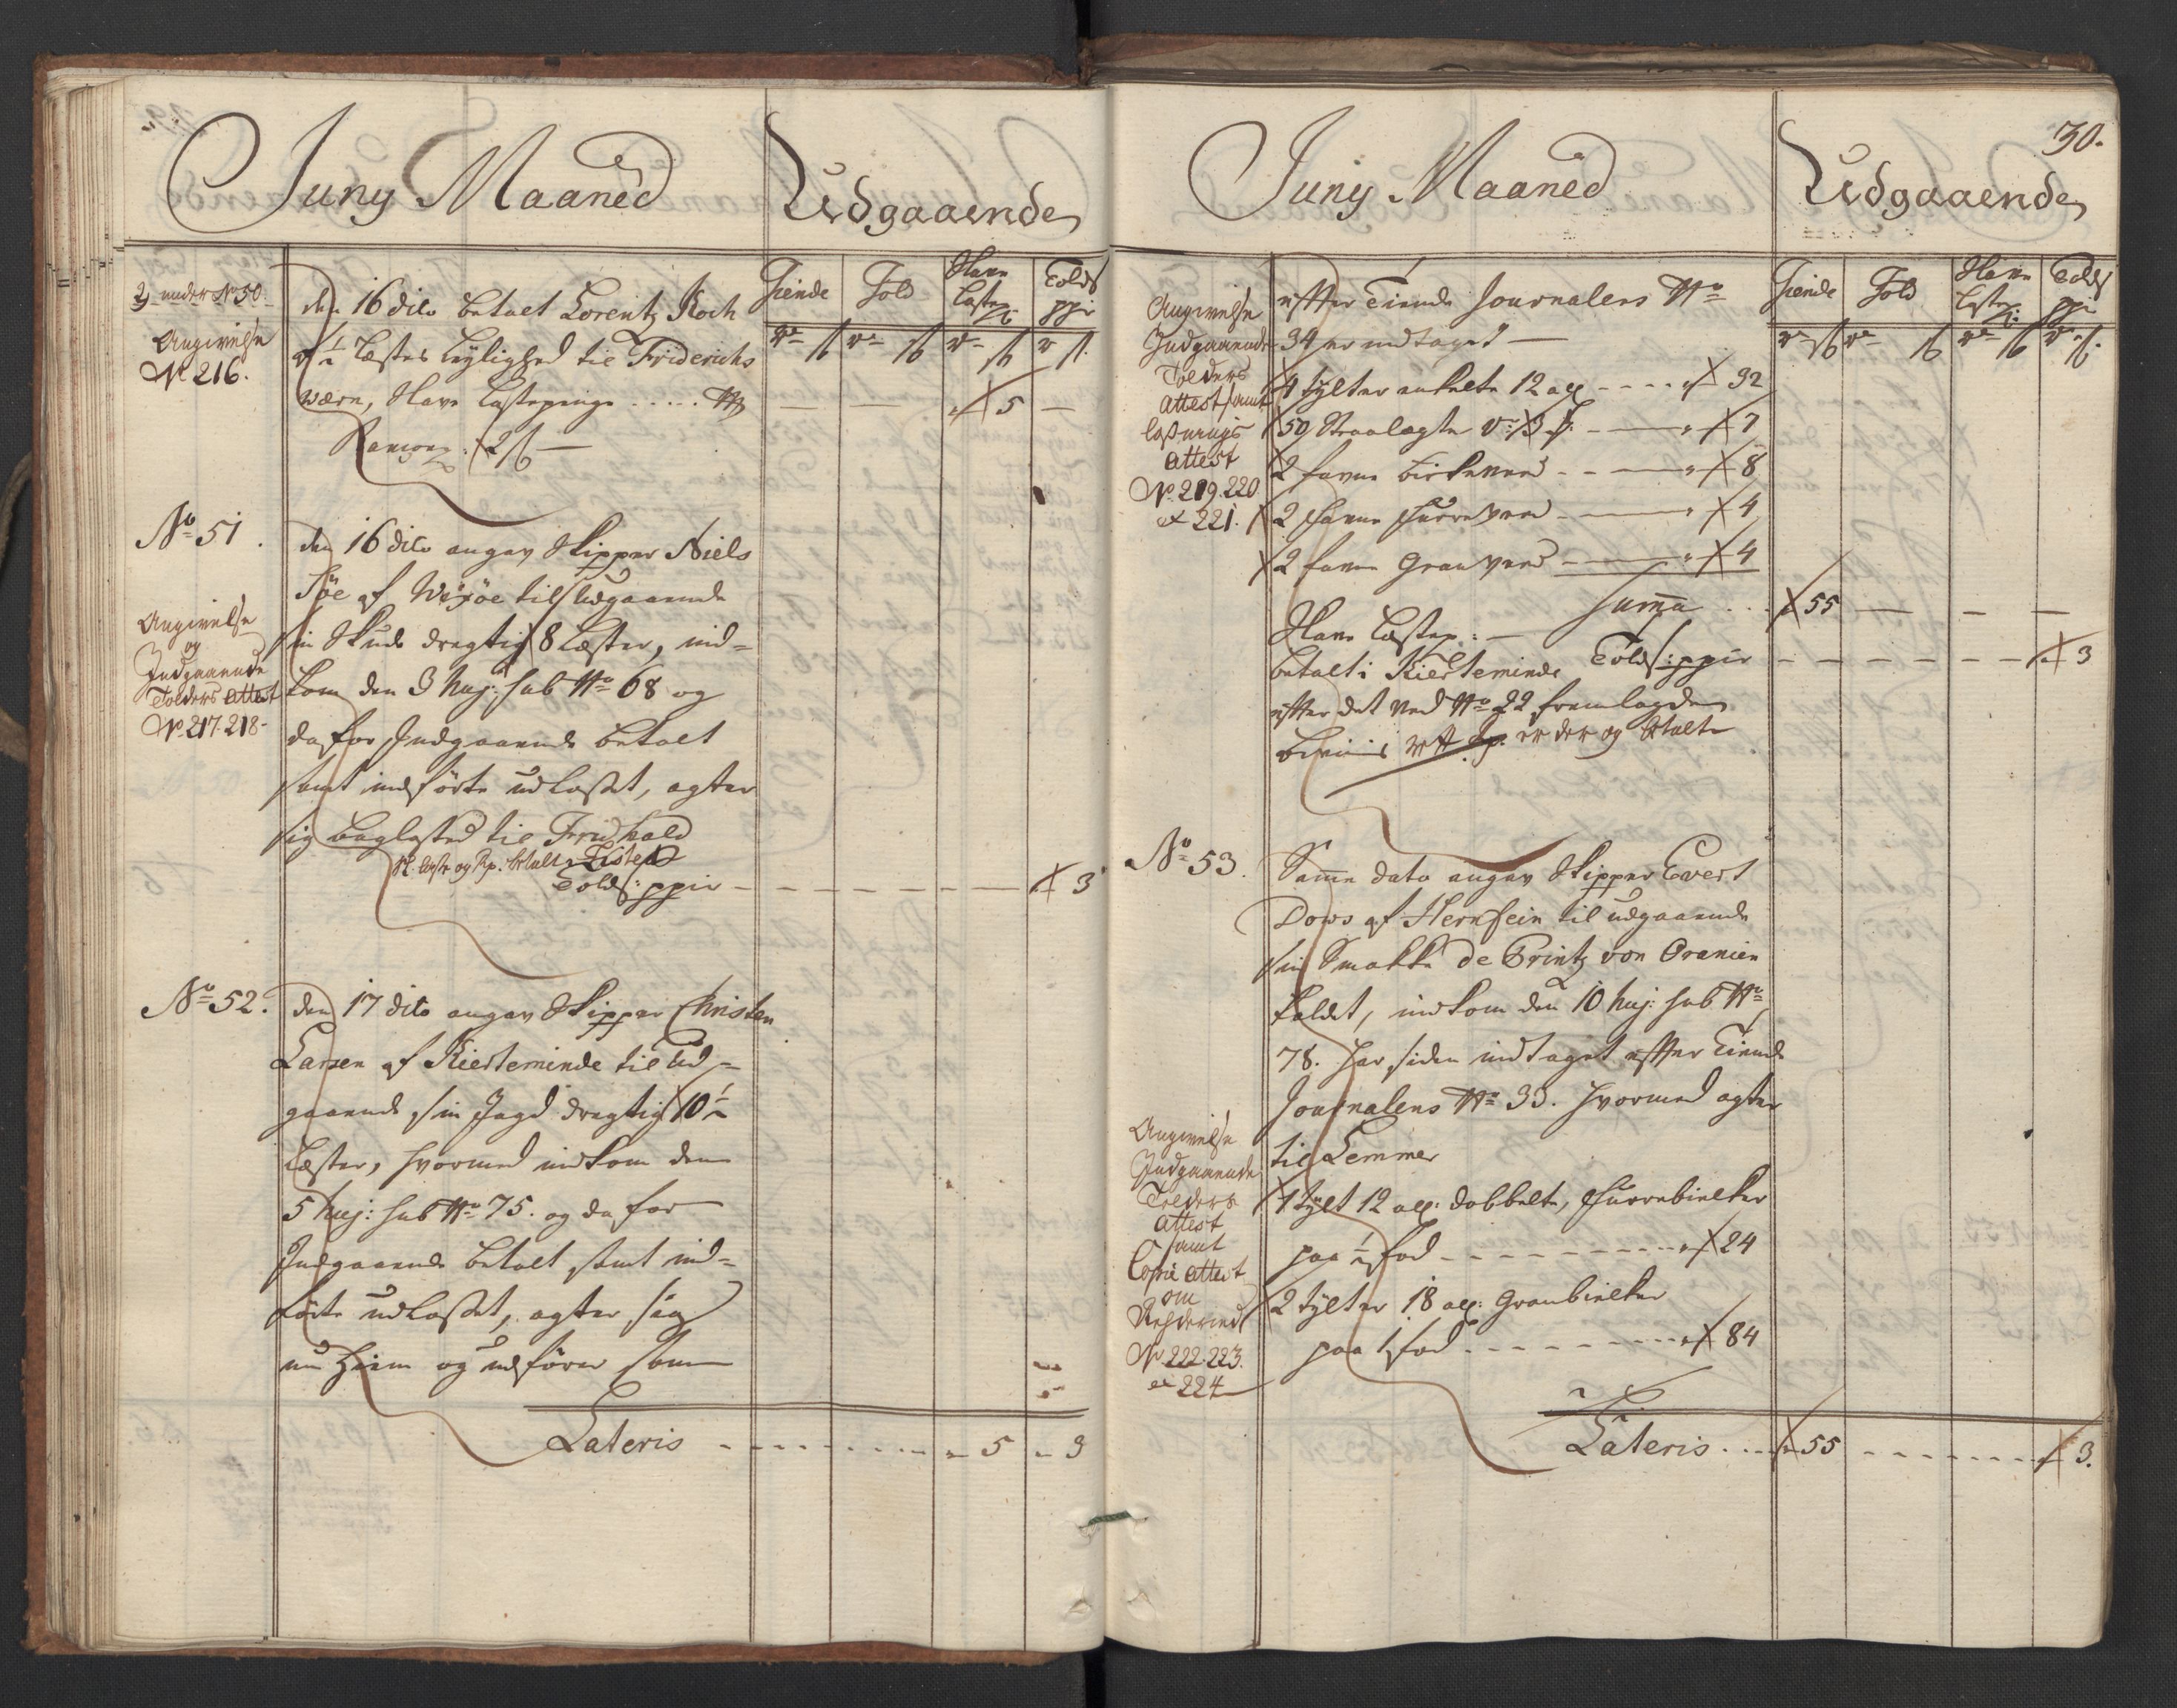 Juny Maaned
Udgaaende
Tiende
Told
Havn
Lastep:
Told
ppir
rd ß rd ß rd ß r ß
2) under No 50
Angivelse
No 216.
den 16 dito betalt Lorentz Koch
af ½ Læsters leylighed til Friderichs
værn, Havn Lastepenge . . . . . — — 5 —
Rancon: 2 ß —
No 51.
Angivelse
og
Indgaaende
Tolders attest
No 217. 218.
den 16 dito angav Skipper Niels
af til udgaaende
sin Skude drægtig 8 Læster, ind=
kom den 3 huj: sub No 68 og
da for Indgaaende betalt
samt indførte udlosset, agter
sig baglasted til Fridhald
H: laste og Rp. betalt
Tolds: ppir - - - - - - 3
No 52.
den 17 dito angav Skipper Christen
Larsen af Kierteminde til ud=
gaaende sin Jagd drægtig 10½
Læster, hvormed indkom den
5 huj: sub No 75. og da for
Indgaaende betalt, samt ind=
førte udlosset, agter sig
nu hiem og udfører som
Lateris - - - - - - 5 - 3
30.
Juny Maaned
Udgaaende
Tiende
Told
Havn
Lastp:
Told
ppir
rd ß rd ß rd ß r ß
Angivelse
Indgaaende
Tolders
Attest samt
losnings
attest
No 219. 220.
et 221.
efter Tiende Journalens No
34 er indtaget —
4 tylter enkelte 12 all - - - - 32
50 Staalægte - - - 7
2 favne birkeved - - - 8
2 favne furreved - - - 4
2 favne Granved - - - 4
Summa . . 55 — — —
Havn Lastep: —
betalt i Kierteminde Tolds: ppir - - - - - - 3
efter det ved No 22 fremlagde
beviis er der og betalt
No 53.
Angivelse
Indgaaende
Tolders
attest
samt
Copie attest
om
No 222. 223.
et 224
Samme dato angav Skipper Evert
Dows af til udgaaende
sin Smakke de Printz von Oranien
kaldet, indkom den 10 huj: sub No
78. har siden indtaget efter Tiende
Journalens No 33. hvormed agter
til Lemmer
1 tylt 12 all: dobbelte, furrebielker
paa ½ fod - - - - - 24
2 tylter 18 all: Granbielker
paa 1 fod - - - - - 84
Lateris . . . 55 - - - - - - 3.